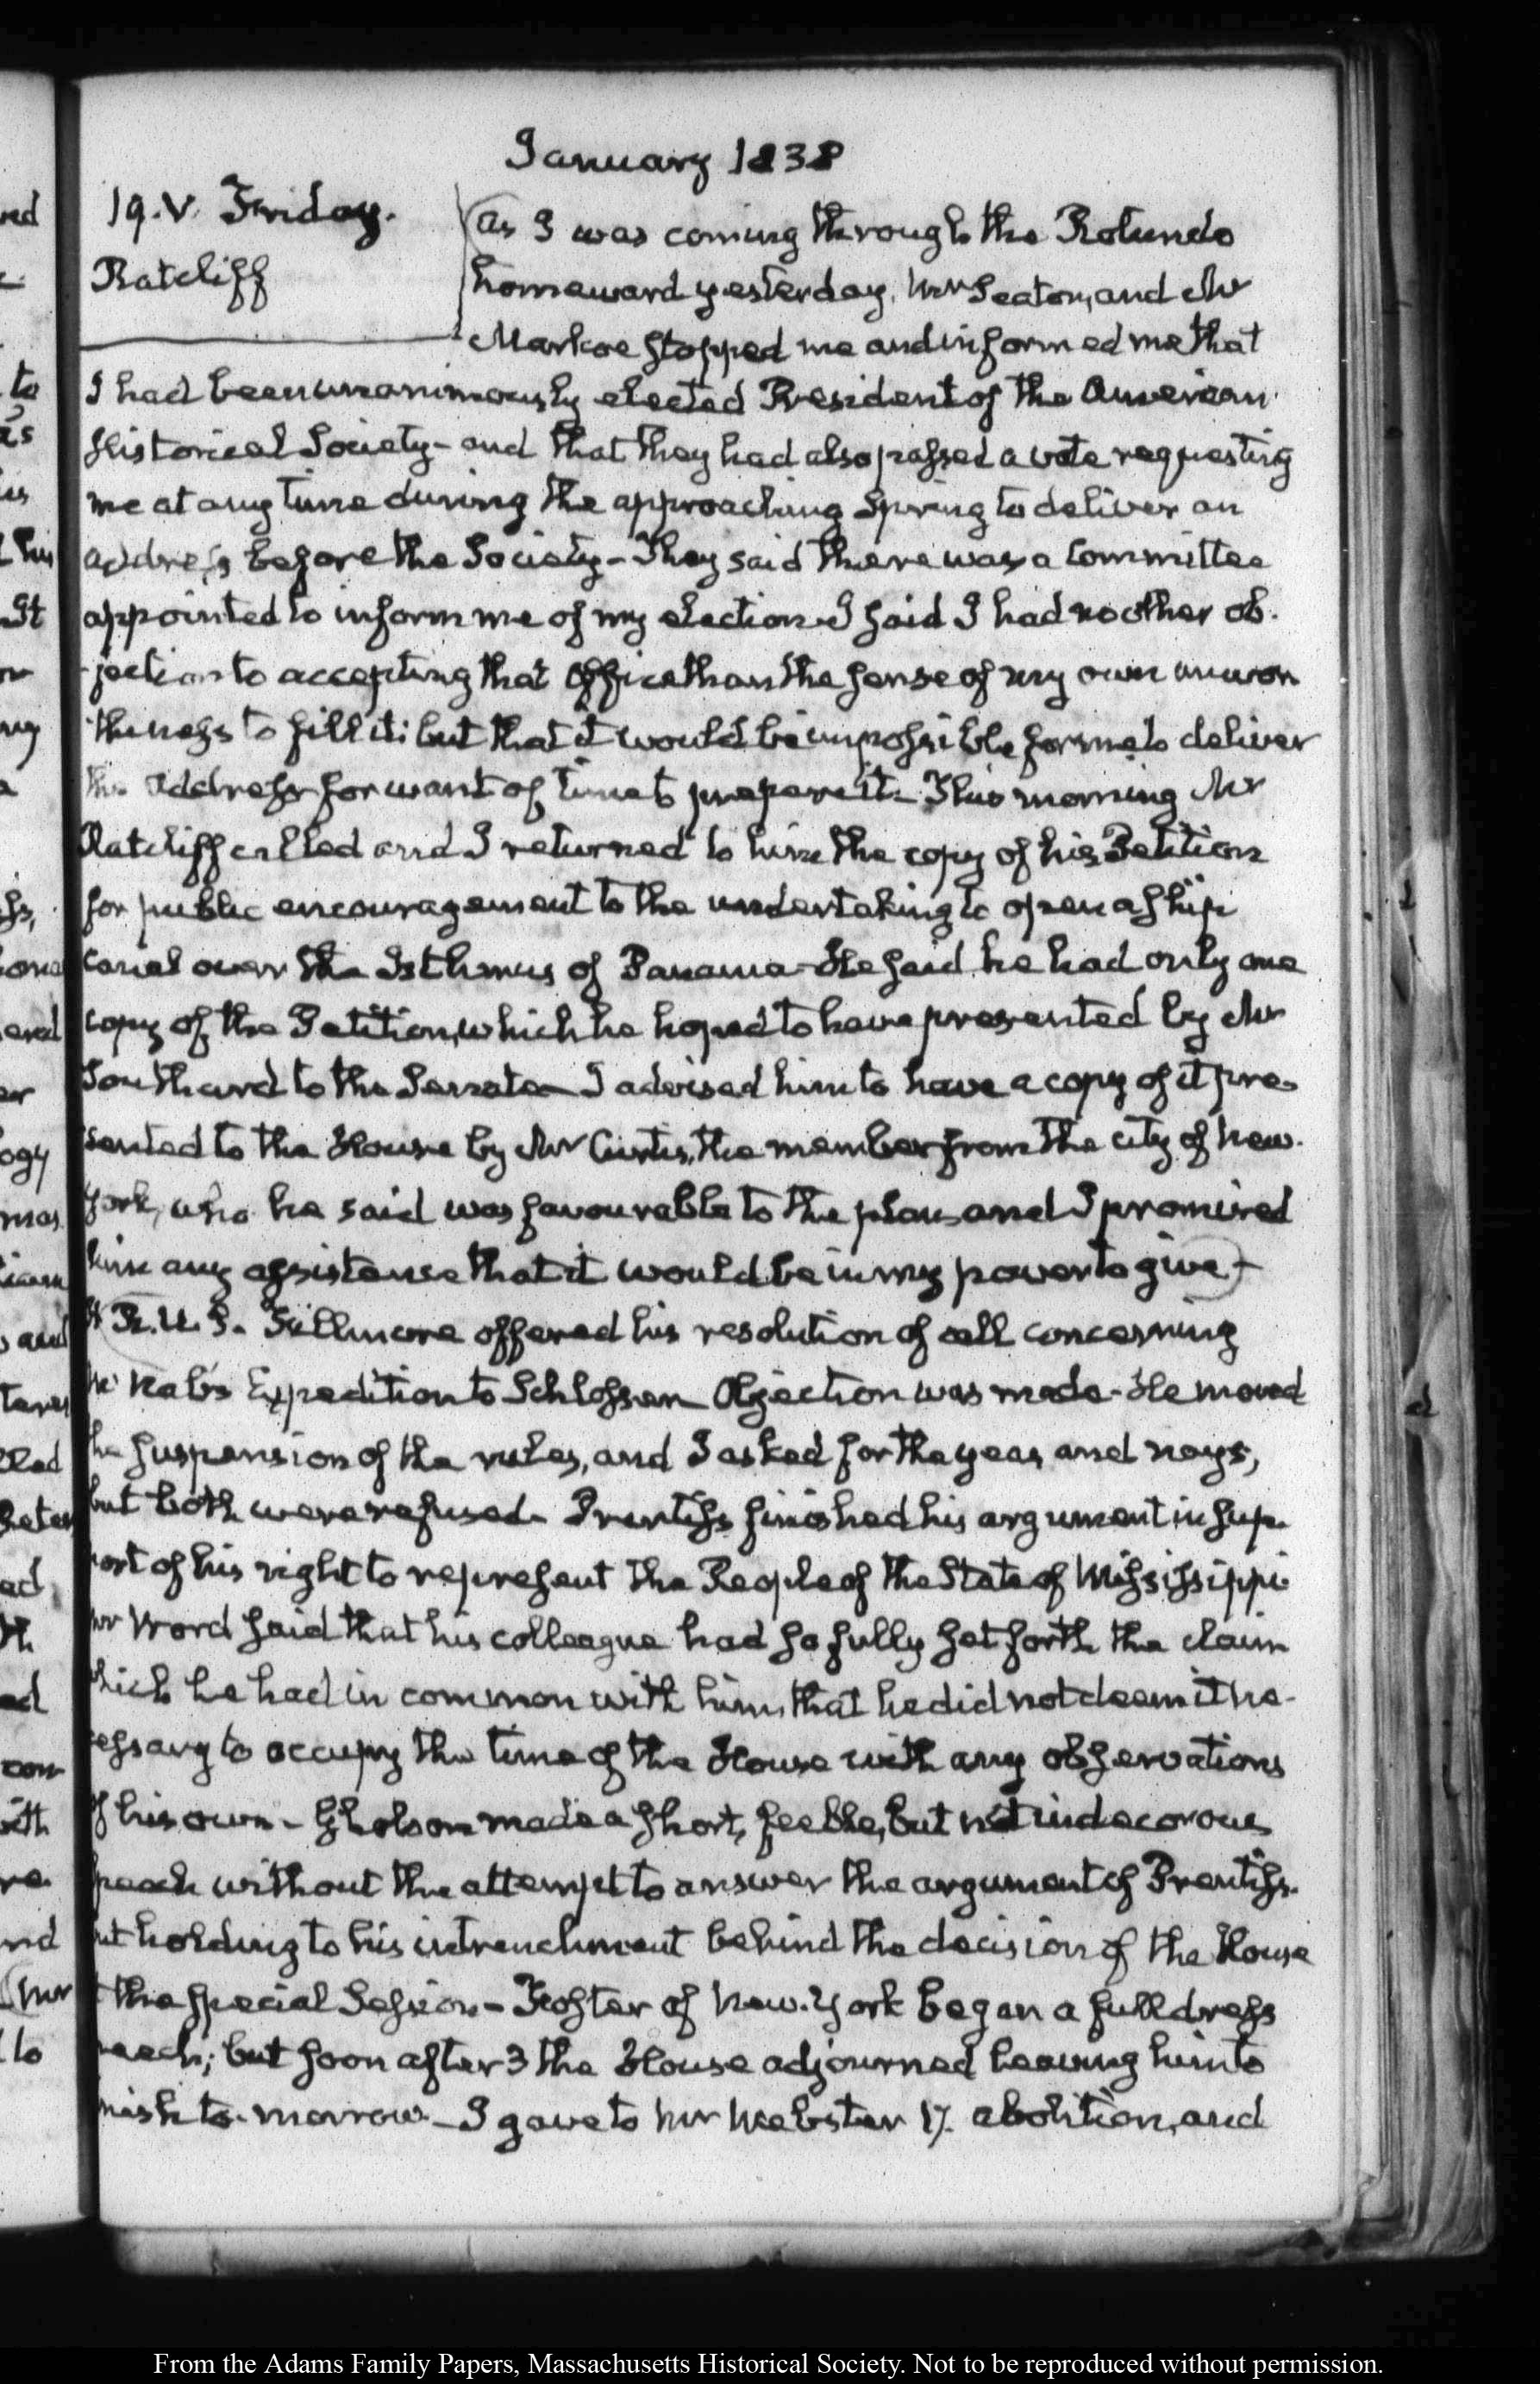 January 1838
19. V. Friday.
Ratcliff
As I was coming through the Rotundo
homeward yesterday, Mr Seaton, and Mr
Markoe stopped me and informed me that
I had been unanimously elected President of the American
Historical Society - and that they had also passed a vote requesting
me at any time during the approaching Spring to deliver an
address before the Society - They said there was a Committee
appointed to inform me of my election. I said I had no other ob-
-jection to accepting that Office than the sense of my own unwor
thiness to fill it: but that it would be impossible for me to deliver
the address for want of time to prepare it - This morning Mr
Ratcliff called and I returned to him the copy of his Petition
for public encouragement to the undertaking to open a ship
canal over the Isthmus of Panama - He said he had only one
copy of the Petition, which he hoped to have presented by Mr
Southard to the Senate - I advised him to have a copy of it pre-
sented to the House by Mr Curtis, the member from the city of New-
York, who he said was favourable to the plan, and I promised
him any assistance that it would be in my power to give -
H.R.U.S. Fillmore offered his resolution of call concerning
Mc Nab's Expedition to Schlosser - Objection was made - He moved
the suspension of the rules, and I asked for the yeas and nays,
but both were refused - Prentiss finished his argument in sup-
port of his right to represent the People of the State of Mississippi
Mr Word said that his colleague had so fully set forth the claim
which he had in common with him, that he did not deem it ne-
cessary to occupy the time of the House with any observations
of his own - Gholson made a short, feeble, but not indecorous
speech without the attempt to answer the argument of Prentiss.
but holding to his intrenchment behind the decision of the House
at the special Session - Foster of New-York began a full dress
speech; but soon after 3 the House adjourned leaving him to
finish to-morrow - I gave to Mr Webster 17. abolition, and
From the Adams Family Papers, Massachusetts Historical Society. Not to be reproduced without permission.